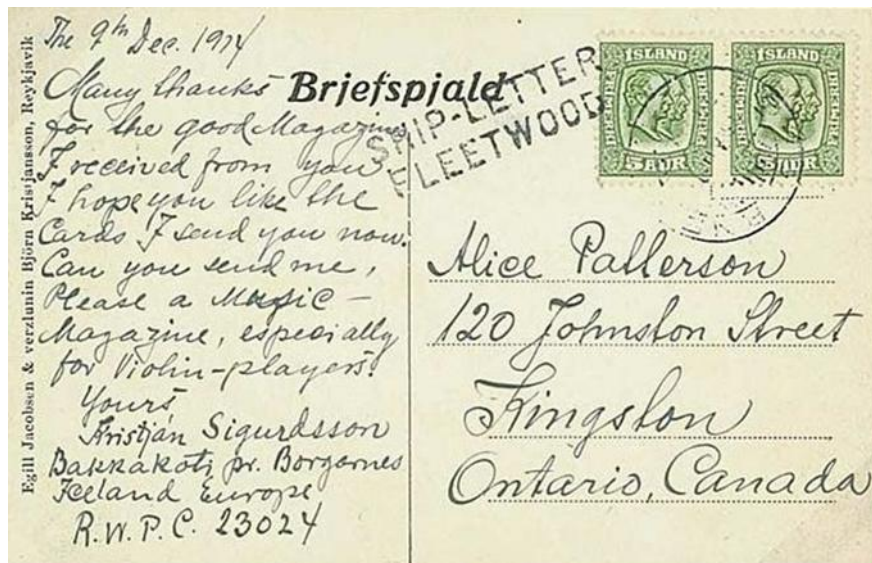 Egill Jacobsen & verzlunin Björn Kristjansson, Reykjavik
The 9th Dec. 1914
Many thanks
for the good Magazine
I received from you
I hope you like the
Cards I send you now.
Can you send me,
Please a Music-
Magazine, especially
for Violin-players.
Yours,
Kristján Sigurdsson
Bakkakoti pr. Borgarnes
Iceland Europe
R.W.P.C. 23024
Brjefspjald
SHIP-LETTER
FLEETWOOD
ÍSLAND
5 AUR
ÍSLAND
5 AUR
Alice Patterson
120 Johnston Street
Kingston
Ontario, Canada